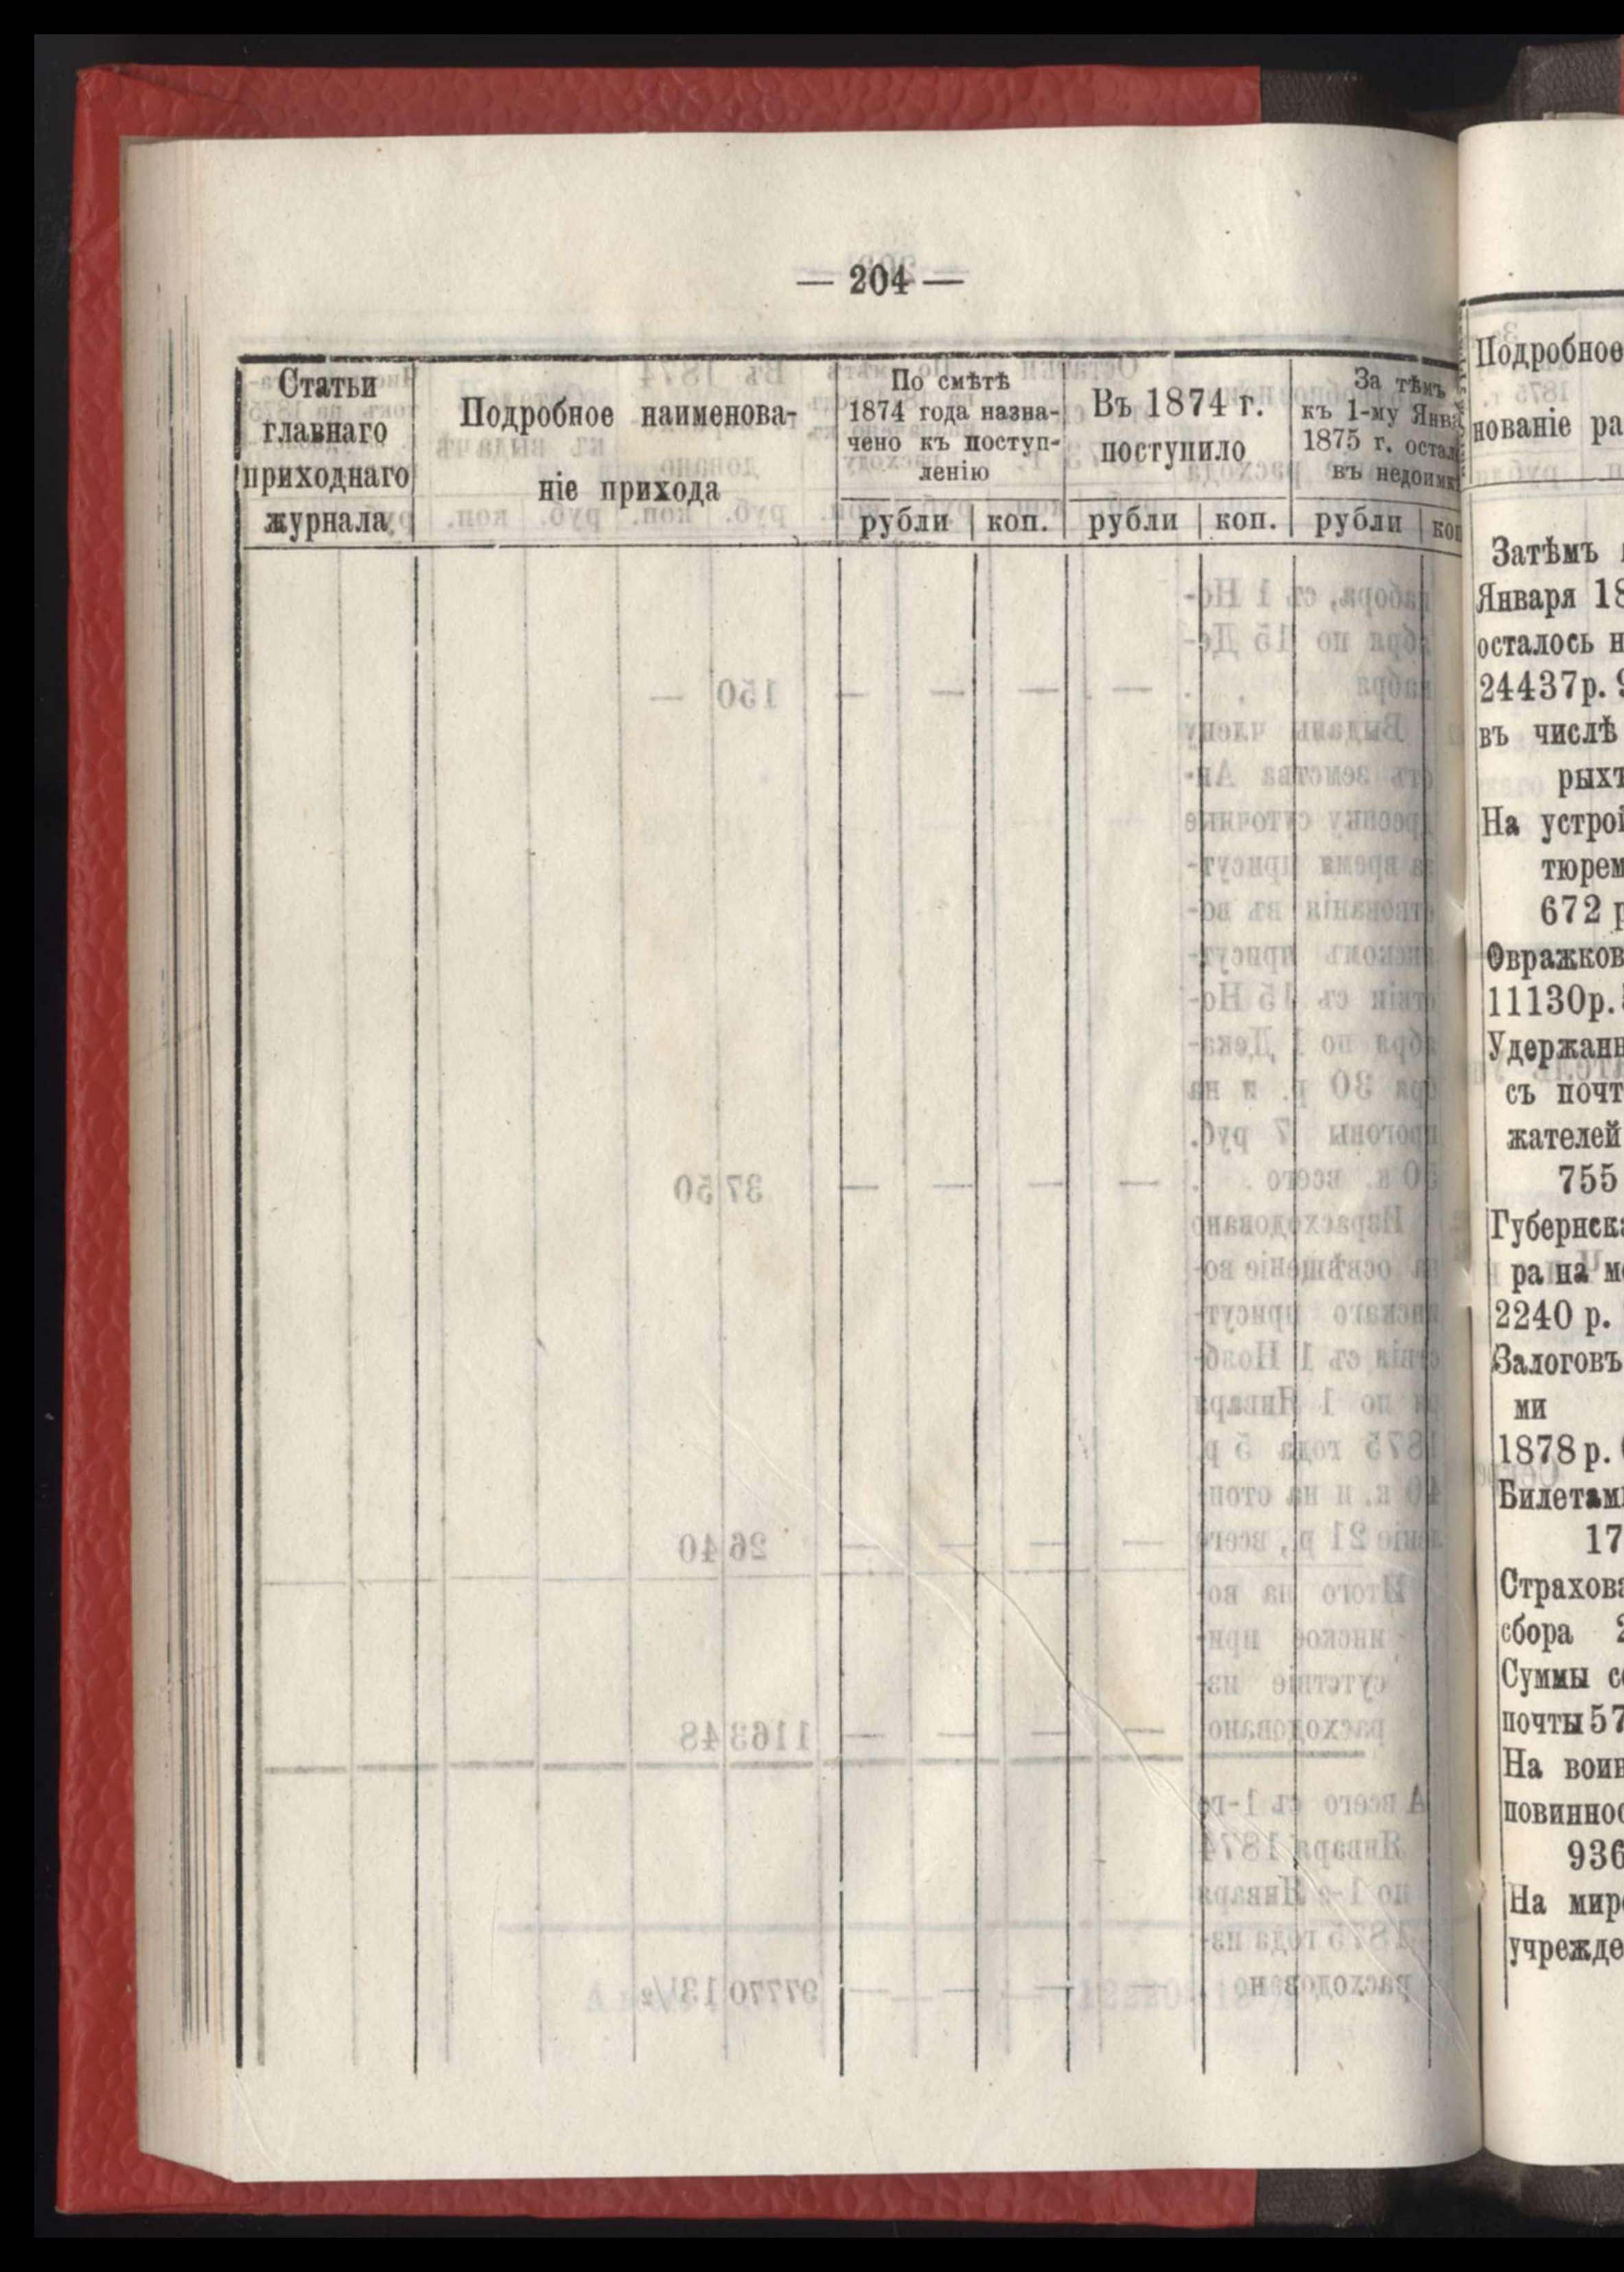 — 204 —
Статьи
главнаго
приходнаго
журнала
Подробное наименова-
ніе прихода
По смѣтѣ
1874 года назна-
чено къ поступ-
ленію
рубли коп.
Въ 1874 г.
поступило
рубли коп.
За тѣмъ
къ 1-му Янва
1875 г. остал
въ недоимк
рубли коп
Подробное
нованіе ра
Затѣмъ
Января 18
осталось н
24437р. 9
въ числѣ
рыхъ
На устрой
тюрем
672 р
Овражков
11130р.
Удержанн
съ почт
жателей
755
Губернска
ра на мо
2240 р.
Залоговъ
ми
1878 р.
Билетами
17
Страхова
сбора 2
Суммы со
почты 57
На воин
повиннос
936
На миро
учрежде